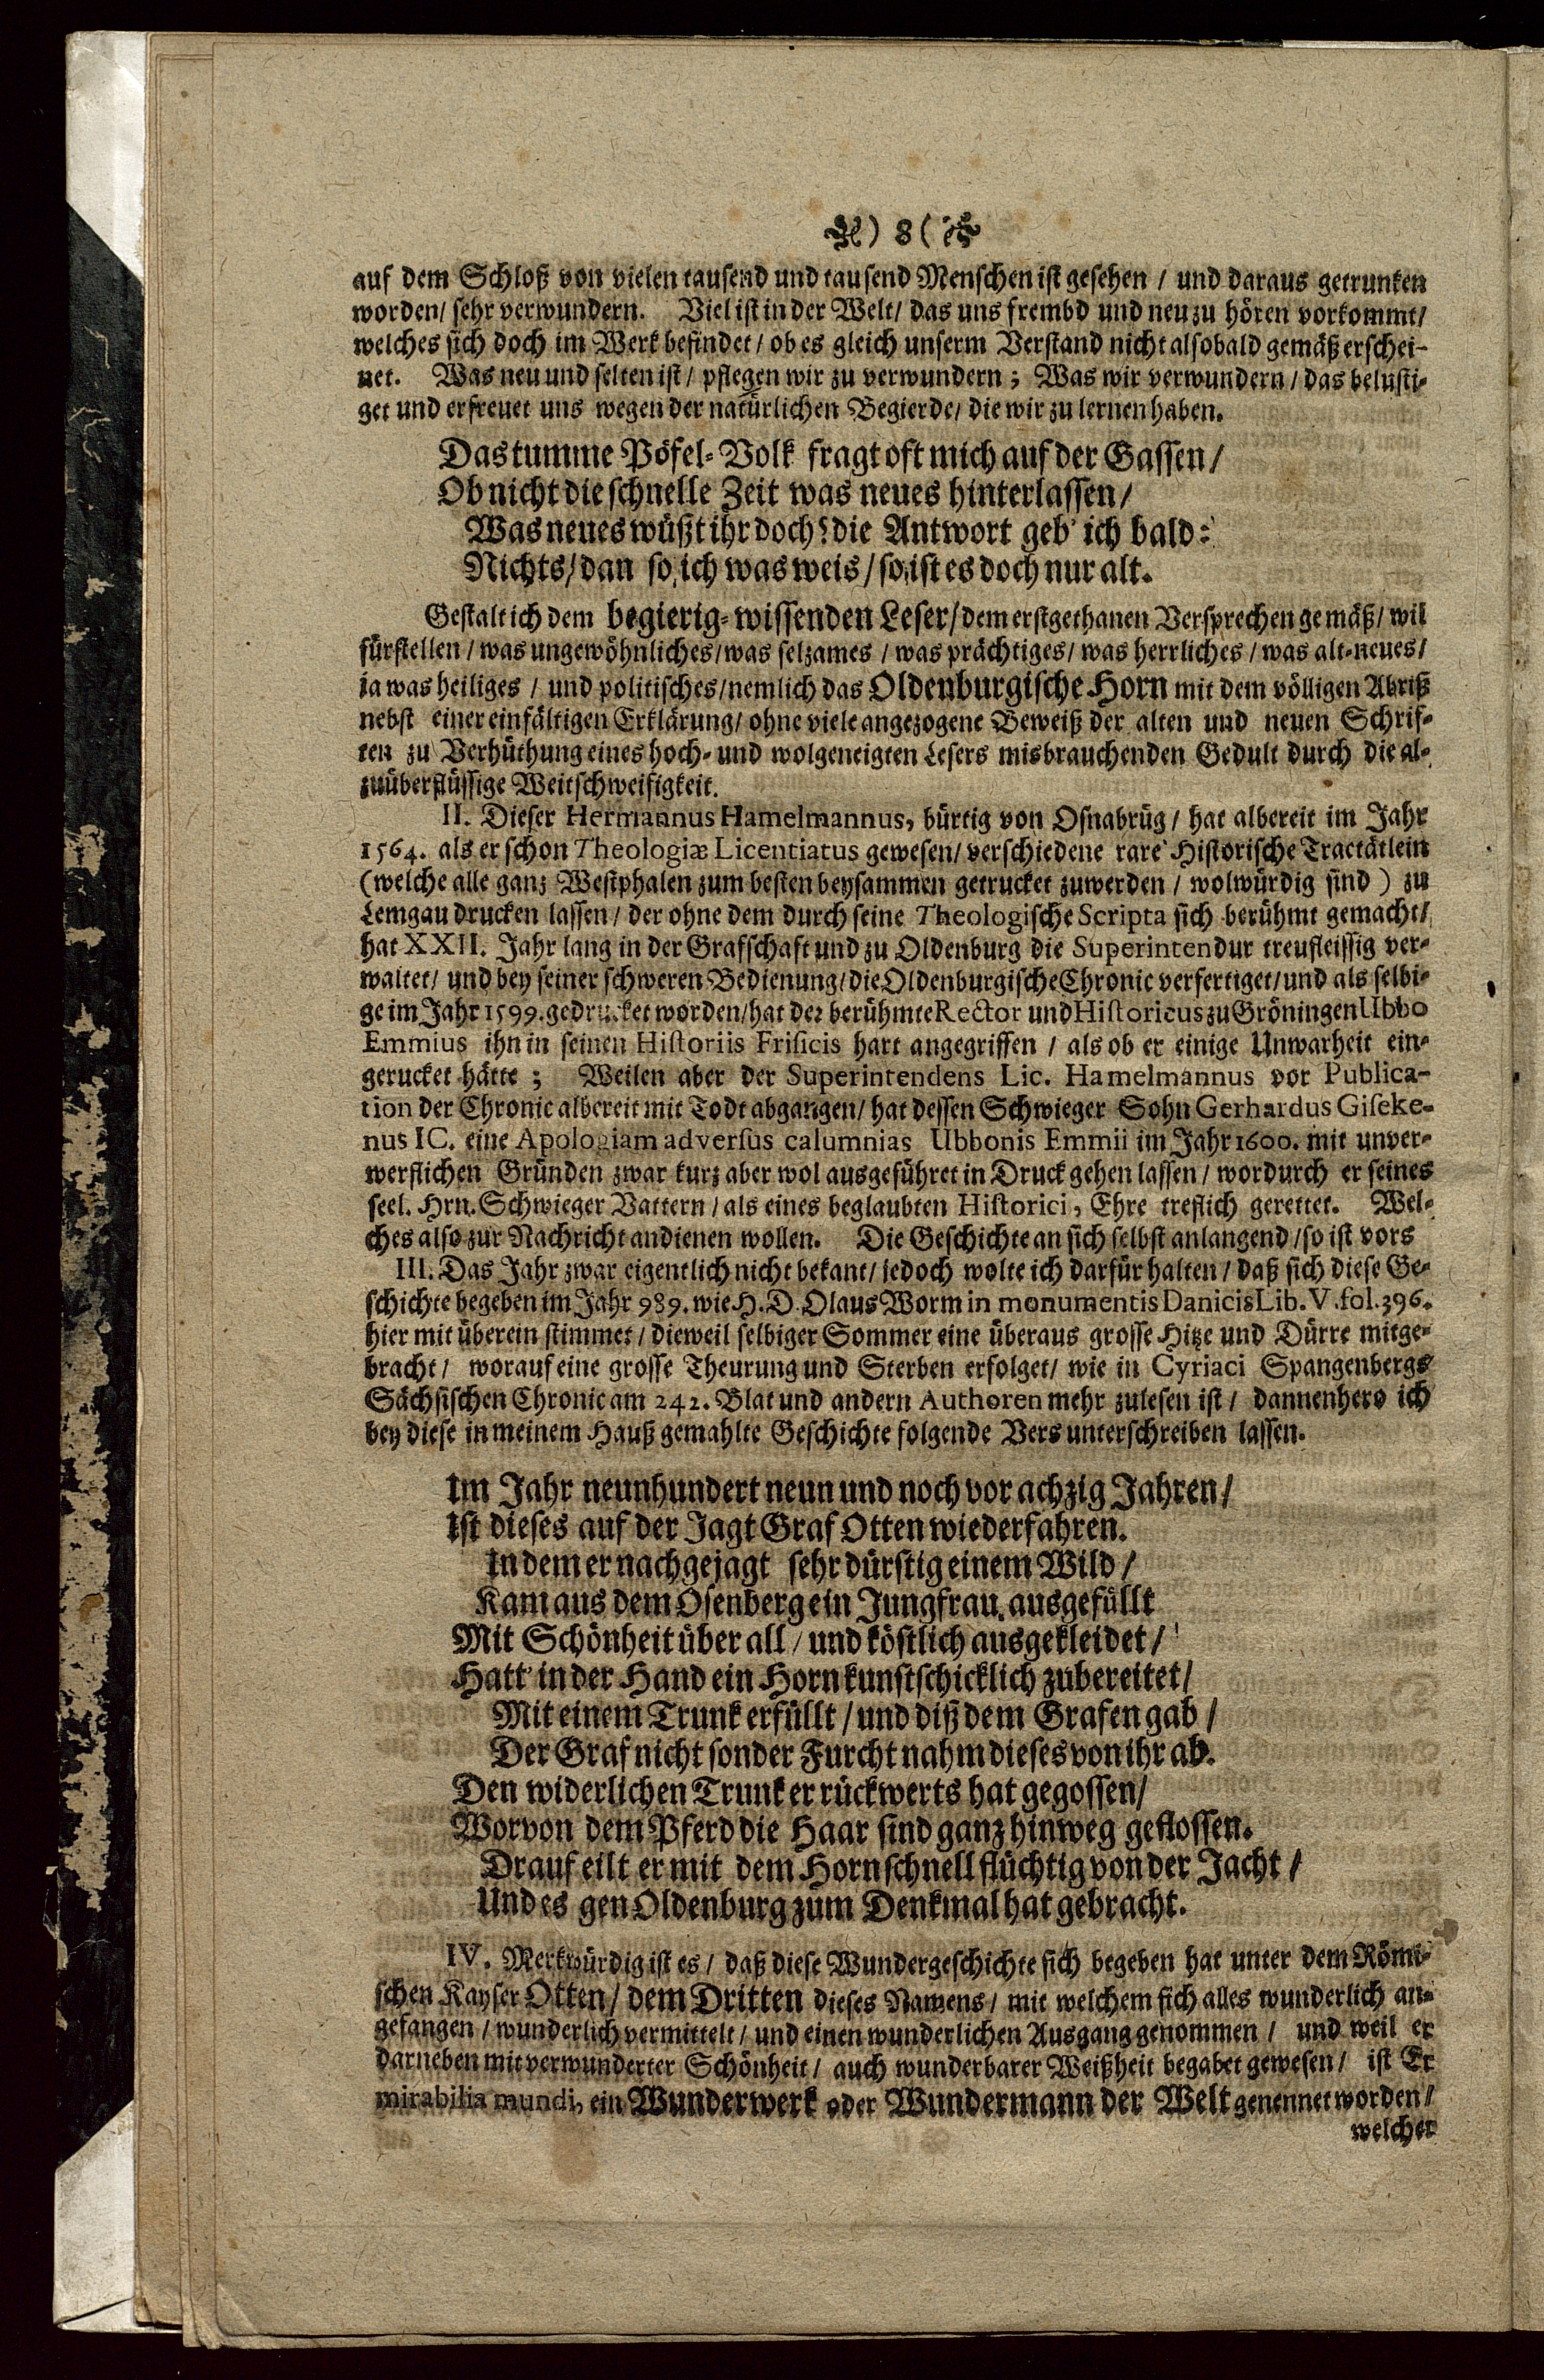 ) 8 (
auf dem Schloß von vielen tausend und tausend Menschen ist gesehen / und daraus getrunken
worden / sehr verwundern. Viel ist in der Welt / das uns frembd und neu zu hören vorkommt /
welches sich doch im Werk befindet / ob es gleich unserm Verstand nicht alsobald gemäß erschei-
net. Was neu und selten ist / pflegen wir zu verwundern; Was wir verwundern / das belusti-
get und erfreuet uns wegen der natürlichen Begierde / die wir zu lernen haben.
Das tumme Pöfel-Volk fragt oft mich auf der Gassen /
Ob nicht die schnelle Zeit was neues hinterlassen /
Was neues wüßt ihr doch? die Antwort geb' ich bald:
Nichts / dan so ich was weis / so ist es doch nur alt.
Gestalt ich dem begierig-wissenden Leser / dem erstgethanen Versprechen gemäß / wil
fürstellen / was ungewöhnliches / was selzames / was prächtiges / was herrliches / was alt-neues /
ja was heiliges / und politisches / nemlich das Oldenburgische Horn mit dem völligen Abriß
nebst einer einfältigen Erklärung / ohne viele angezogene Beweiß der alten und neuen Schrif-
ten zu Verhüthung eines hoch- und wolgeneigten Lesers misbrauchenden Gedult durch die al-
zuüberflüssige Weitschweifigkeit.
II. Dieser Hermannus Hamelmannus, bürtig von Osnabrüg / hat albereit im Jahr
1564. als er schon Theologiæ Licentiatus gewesen / verschiedene rare Historische Tractätlein
(welche alle ganz Westphalen zum besten beysammen getrucket zuwerden / wolwürdig sind) zu
Lemgau drucken lassen / der ohne dem durch seine Theologische Scripta sich berühmt gemacht /
hat XXII. Jahr lang in der Grafschaft und zu Oldenburg die Superintendur treufleissig ver-
waltet / und bey seiner schweren Bedienung / die Oldenburgische Chronic verfertiget / und als selbi-
ge im Jahr 1599. gedrucket worden / hat der berühmte Rector und Historicus zu Gröningen Ubbo
Emmius ihn in seinen Historiis Frisicis hart angegriffen / als ob er einige Unwarheit ein-
gerucket hätte; Weilen aber der Superintendens Lic. Hamelmannus vor Publica-
tion der Chronic albereit mit Todt abgangen / hat dessen Schwieger Sohn Gerhardus Giseke-
nus IC. eine Apologiam adversus calumnias Ubbonis Emmii im Jahr 1600. mit unver-
werflichen Gründen zwar kurz aber wol ausgeführet in Druck gehen lassen / wordurch er seines
seel. Hrn. Schwieger Vattern / als eines beglaubten Historici, Ehre treflich gerettet. Wel-
ches also zur Nachricht andienen wollen. Die Geschichte an sich selbst anlangend / so ist vors
III. Das Jahr zwar eigentlich nicht bekant / jedoch wolte ich darfür halten / daß sich diese Ge-
schichte begeben im Jahr 989. wie H. D. Olaus Worm in monumentis Danicis Lib. V. fol. 396.
hier mit überein stimmet / dieweil selbiger Sommer eine überaus grosse Hitze und Dürre mitge-
bracht / worauf eine grosse Theurung und Sterben erfolget / wie in Cyriaci Spangenbergs
Sächsischen Chronic am 242. Blat und andern Authoren mehr zulesen ist / dannenhero ich
bey diese in meinem Hauß gemahlte Geschichte folgende Vers unterschreiben lassen.
Im Jahr neunhundert neun und noch vor achzig Jahren /
Ist dieses auf der Jagt Graf Otten wiederfahren.
In dem er nachgejagt sehr dürstig einem Wild /
Kam aus dem Osenberg ein Jungfrau, ausgefüllt
Mit Schönheit über all / und köstlich ausgekleidet /
Hatt' in der Hand ein Horn kunstschicklich zubereitet /
Mit einem Trunk erfüllt / und diß dem Grafen gab /
Der Graf nicht sonder Furcht nahm dieses von ihr ab.
Den widerlichen Trunk er rückwerts hat gegossen /
Worvon dem Pferd die Haar sind ganz hinweg geflossen.
Drauf eilt er mit dem Horn schnell flüchtig von der Jacht /
Und es gen Oldenburg zum Denkmal hat gebracht.
IV. Merkwürdig ist es / daß diese Wundergeschichte sich begeben hat unter dem Römi-
schen Kayser Otten / dem Dritten dieses Namens / mit welchem sich alles wunderlich an-
gefangen / wunderlich vermittelt / und einen wunderlichen Ausgang genommen / und weil er
darneben mit verwunderter Schönheit / auch wunderbarer Weißheit begabet gewesen / ist Er
mirabilia mundi, ein Wunderwerk oder Wundermann der Welt genennet worden /
welcher